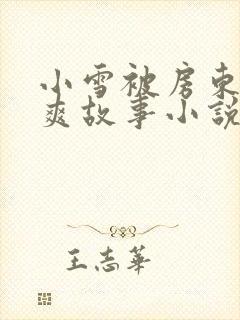 小雪被房東
爽故事小說
王志華